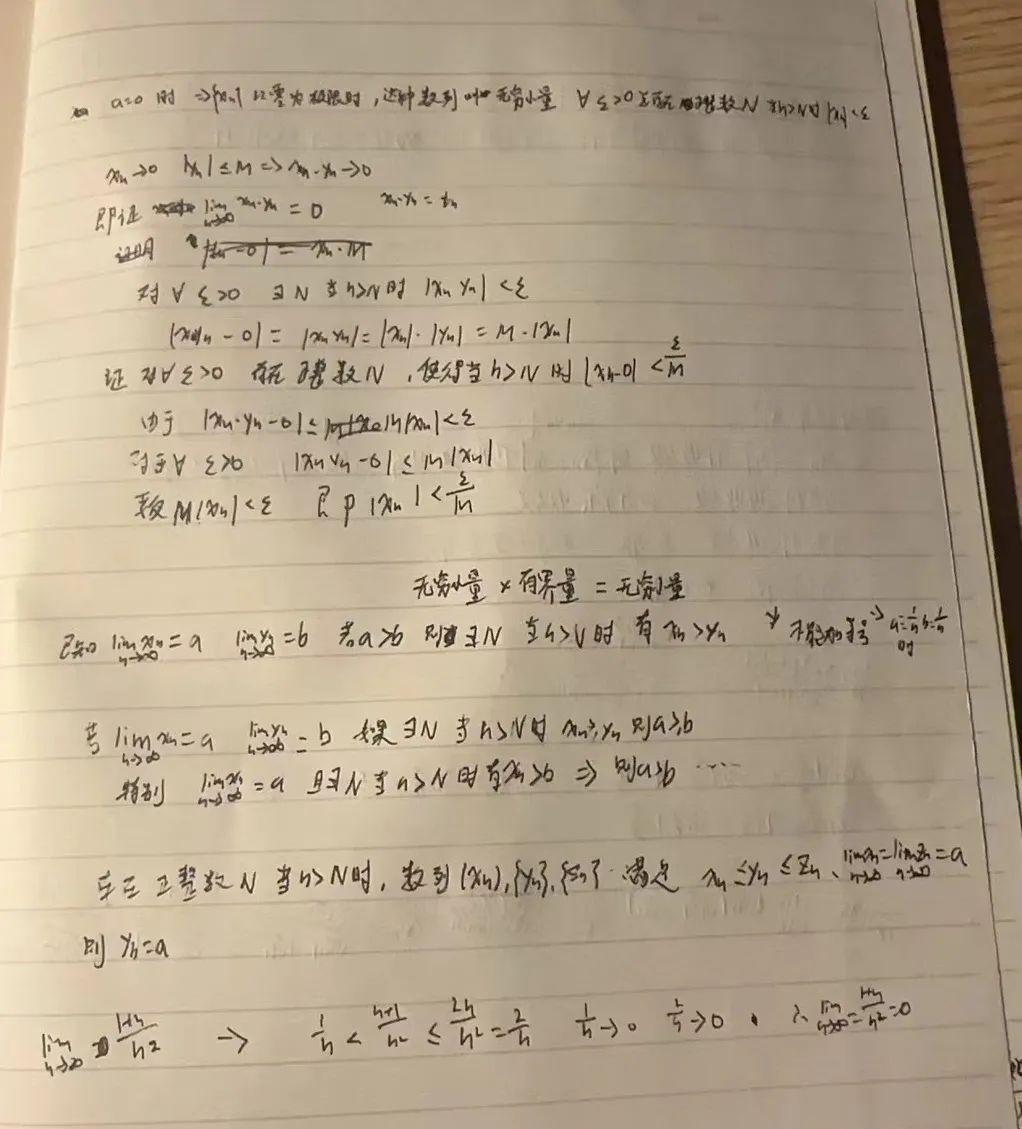 a=0 时 ⇒{xn} 以零为极限时,这种数列叫 无穷小量 ∀ ε>0 存在 正整数N 当n>N时 |xn|<ε
xn→0 |yn| ≤ M ⇒ xn·yn→0
即证 lim n→∞ xn·yn = 0 xn·yn = zn
证明
对 ∀ ε>0 ∃ N 当n>N时 |xn yn| <ε
|xnyn - 0| = |xn yn| = |xn|·|yn| = M·|xn|
证 对∀ ε>0 存在 正整数N,使得当n>N 时 |xn-0| < ε/M
由于 |xn·yn-0| ≤ M|xn|<ε
对于∀ ε>0 |xn yn -0| ≤ M |xn|
M|xn|<ε 即 |xn| < ε/M
无穷小量 × 有界量 = 无穷小量
已知 lim n→∞ xn = a lim n→∞ yn = b 若a>b 则 ∃ N 当n>N时 有 xn>yn 不能加等号 → a=1/n b=1/n 时
若 lim n→∞ xn = a lim n→∞ yn = b 如果 ∃N 当n>N时 xn≥yn 则a≥b
特别 lim n→∞ xn = a 且∃N 当n>N时 有xn>b ⇒ 则a≥b ……
存在正整数N 当n>N时,数列{xn},{yn},{zn} 满足 xn ≤ yn ≤ zn、lim n→∞ xn = lim n→∞ zn = a
则 yn=a
lim n→∞ 1+n/n² → 1/n < n+1/n² ≤ 2n/n² = 2/n 1/n→0 2/n→0 . ∴ lim n→∞ = 1+n/n² = 0